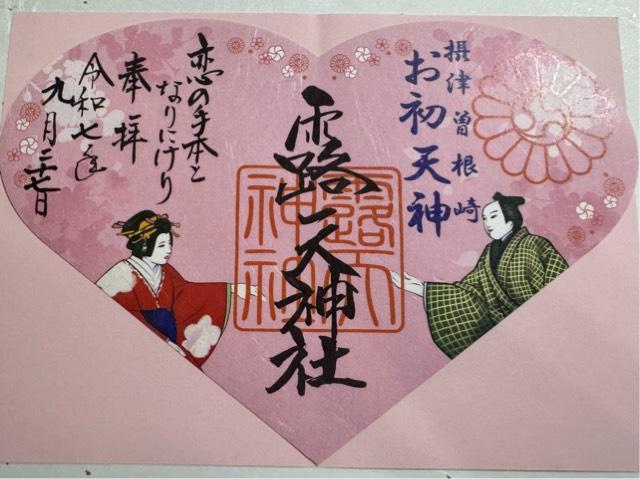 摂津曽根崎
お初天神
露天神社
露天神社
恋の手本と
なりにけり
奉拝
令和七年
九月二十七日